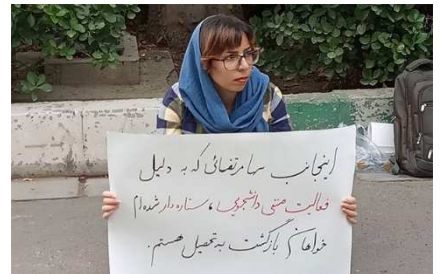 اینجانب سها مرتضائی که به دلیل
فعالیت صنفی دانشجویی، ستاره دار شده ام
خواهان بازگشت به تحصیل هستم.